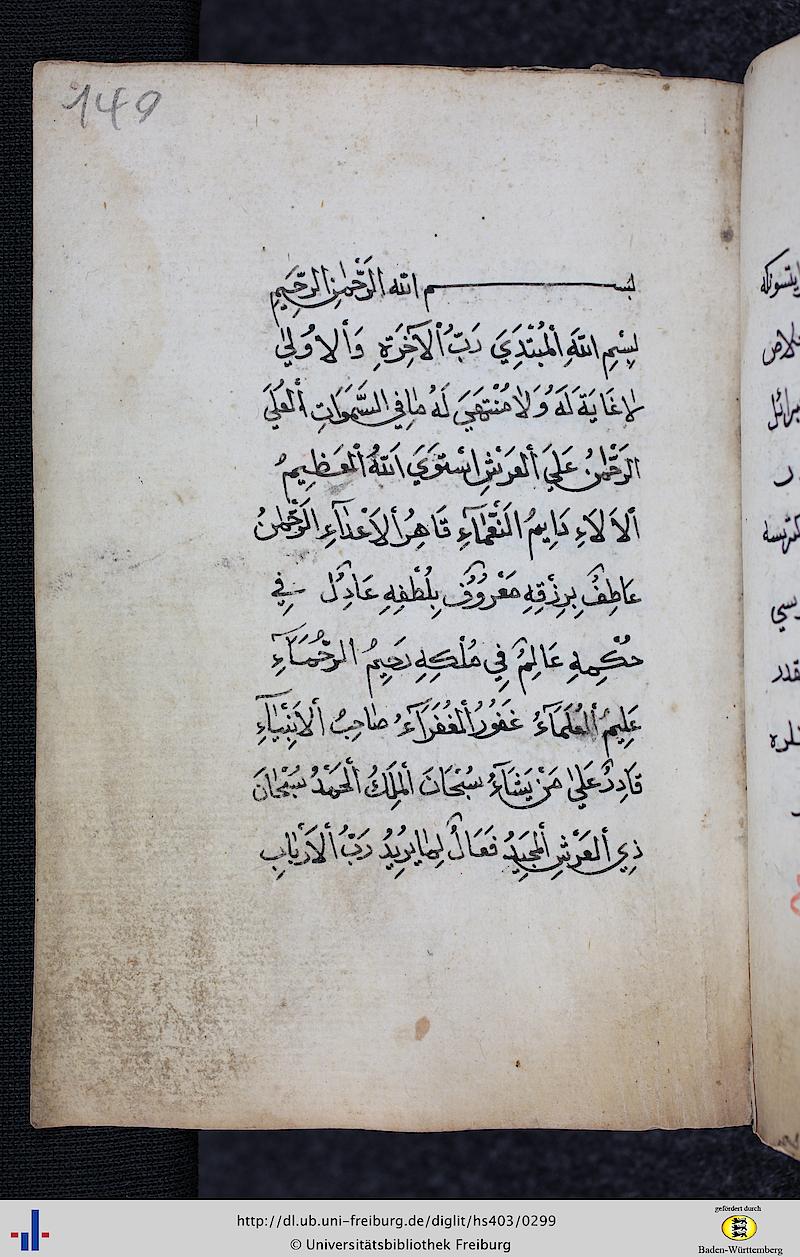 149
بســــــــم الله الرَّحْمٰنِ الرَّحِيمِ
بِسْمِ اللهِ ألْمُبْتَدِيَ رَبِّ ألْآخِرَةِ وَألْاُولٰي
لاٰ غَايَةَ لَهُ وَلاٰ مُنْتَهَيَ لَهُ مٰا فِي السَّمَوَاتِ ألْعُلَيَ
الرَّحْمٰنُ عَلَيَ ألْعَرْشِ اسْتَوَيَ اَللهُ ألْعَظِيمُ
ألاَلاَءِ دَايِمُ النَّعْمَاۤءِ قَاهِرُ ألاَعْدٰاۤءِ الرَّحْمٰنُ
عَاطِفُ بِرِزْقِهِ مَعْرُوُفُ بِلُطْفِهِ عَادِلُ فِي
حُكْمِهِ عَالِمُ فِي مُلْكِهِ رَحِيمُ الرُّحَمَاۤءِ
عَلِيمُ ألْعُلَمَاۤءُ غَفُورُ ألْغُفَرَاۤءُ صٰاحِبُ ألاَنْبِيٰاۤءِ
قَادِرُ عَلٰي مَنْ يَشَاۤءُ سُبْحَانَ ألْمَلِكُ ألْحَمْدُ سُبْحٰانَ
ذِي ألْعَرْشِ ألْمَجِيدُ فَعَالُ لِمٰا يُرِيُدُ رَبُّ ألاَرْبٰابِ
ايتسونكه
http://dl.ub.uni-freiburg.de/diglit/hs403/0299
© Universitätsbibliothek Freiburg
gefördert durch
Baden-Württemberg